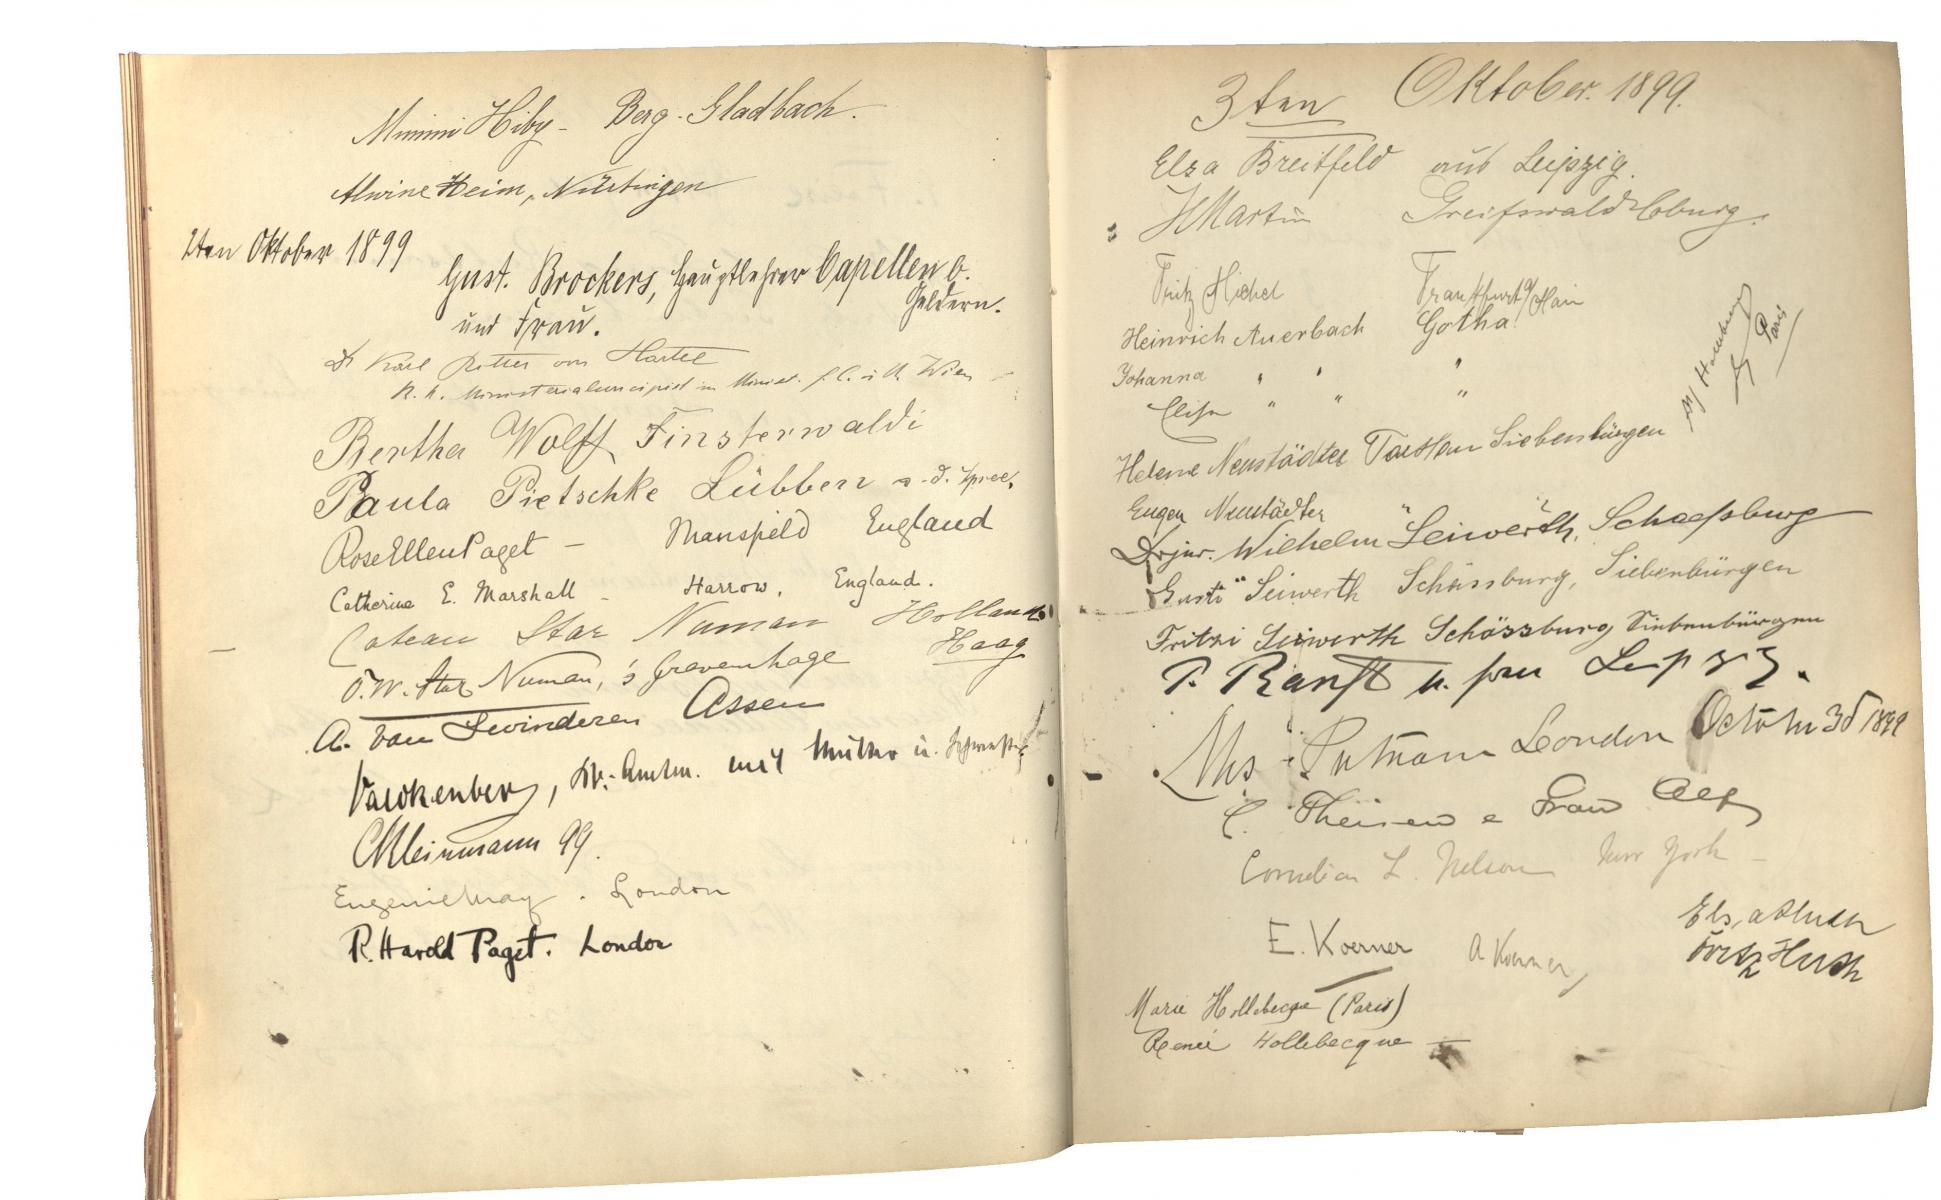 Mimmi Hiby - Berg. Gladbach.
Alwine Heim, Nürtingen
2ten Oktober 1899
Gust. Brockers, Hauptlehrer Capellen b.
Geldern.
und Frau.
Dr Karl Ritter von Hartel
K. k. in Minist. f. C. u. U. Wien
Bertha Wolff Finsterwaldi
Paula Pietschke Lübben a. d. Spree.
Rose Ellen Paget - Mansfield England
Catherine E. Marshall - Harrow, England.
Cateau Star Numan Holland
Haag
O. W. Star Numan, 's Gravenhage
A. van Swinderen Assen
Valckenberg, mit Mutter u. Schwester
CKleinmann 99.
Eugenie May. London
R. Harold Paget. London
3ten Oktober. 1899.
Elsa Breitfeld aus Leipzig.
HMartin Greifswald Coburg.
Fritz Michel Frankfurt a/Main
Heinrich Auerbach Gotha
Johanna " " "
Elise " " "
Paris
Helene Neustädter Siebenbürgen
Eugen Neustädter " "
Dr jur. Wilhelm Seiwerth, Schaessburg
Gusti Seiwerth Schässburg, Siebenbürgen
Fritzi Seiwerth Schässburg Siebenbürgen
P. Ranft u. frau Leipzig.
Mrs Putnam London October 3d 1899
C. Theisen e Frau
Cornelia L. Nelson New York -
E. Koerner A Koerner
Elsa Huth
Fritz Huth
Marie Hollebecque (Paris)
Renée Hollebecque -